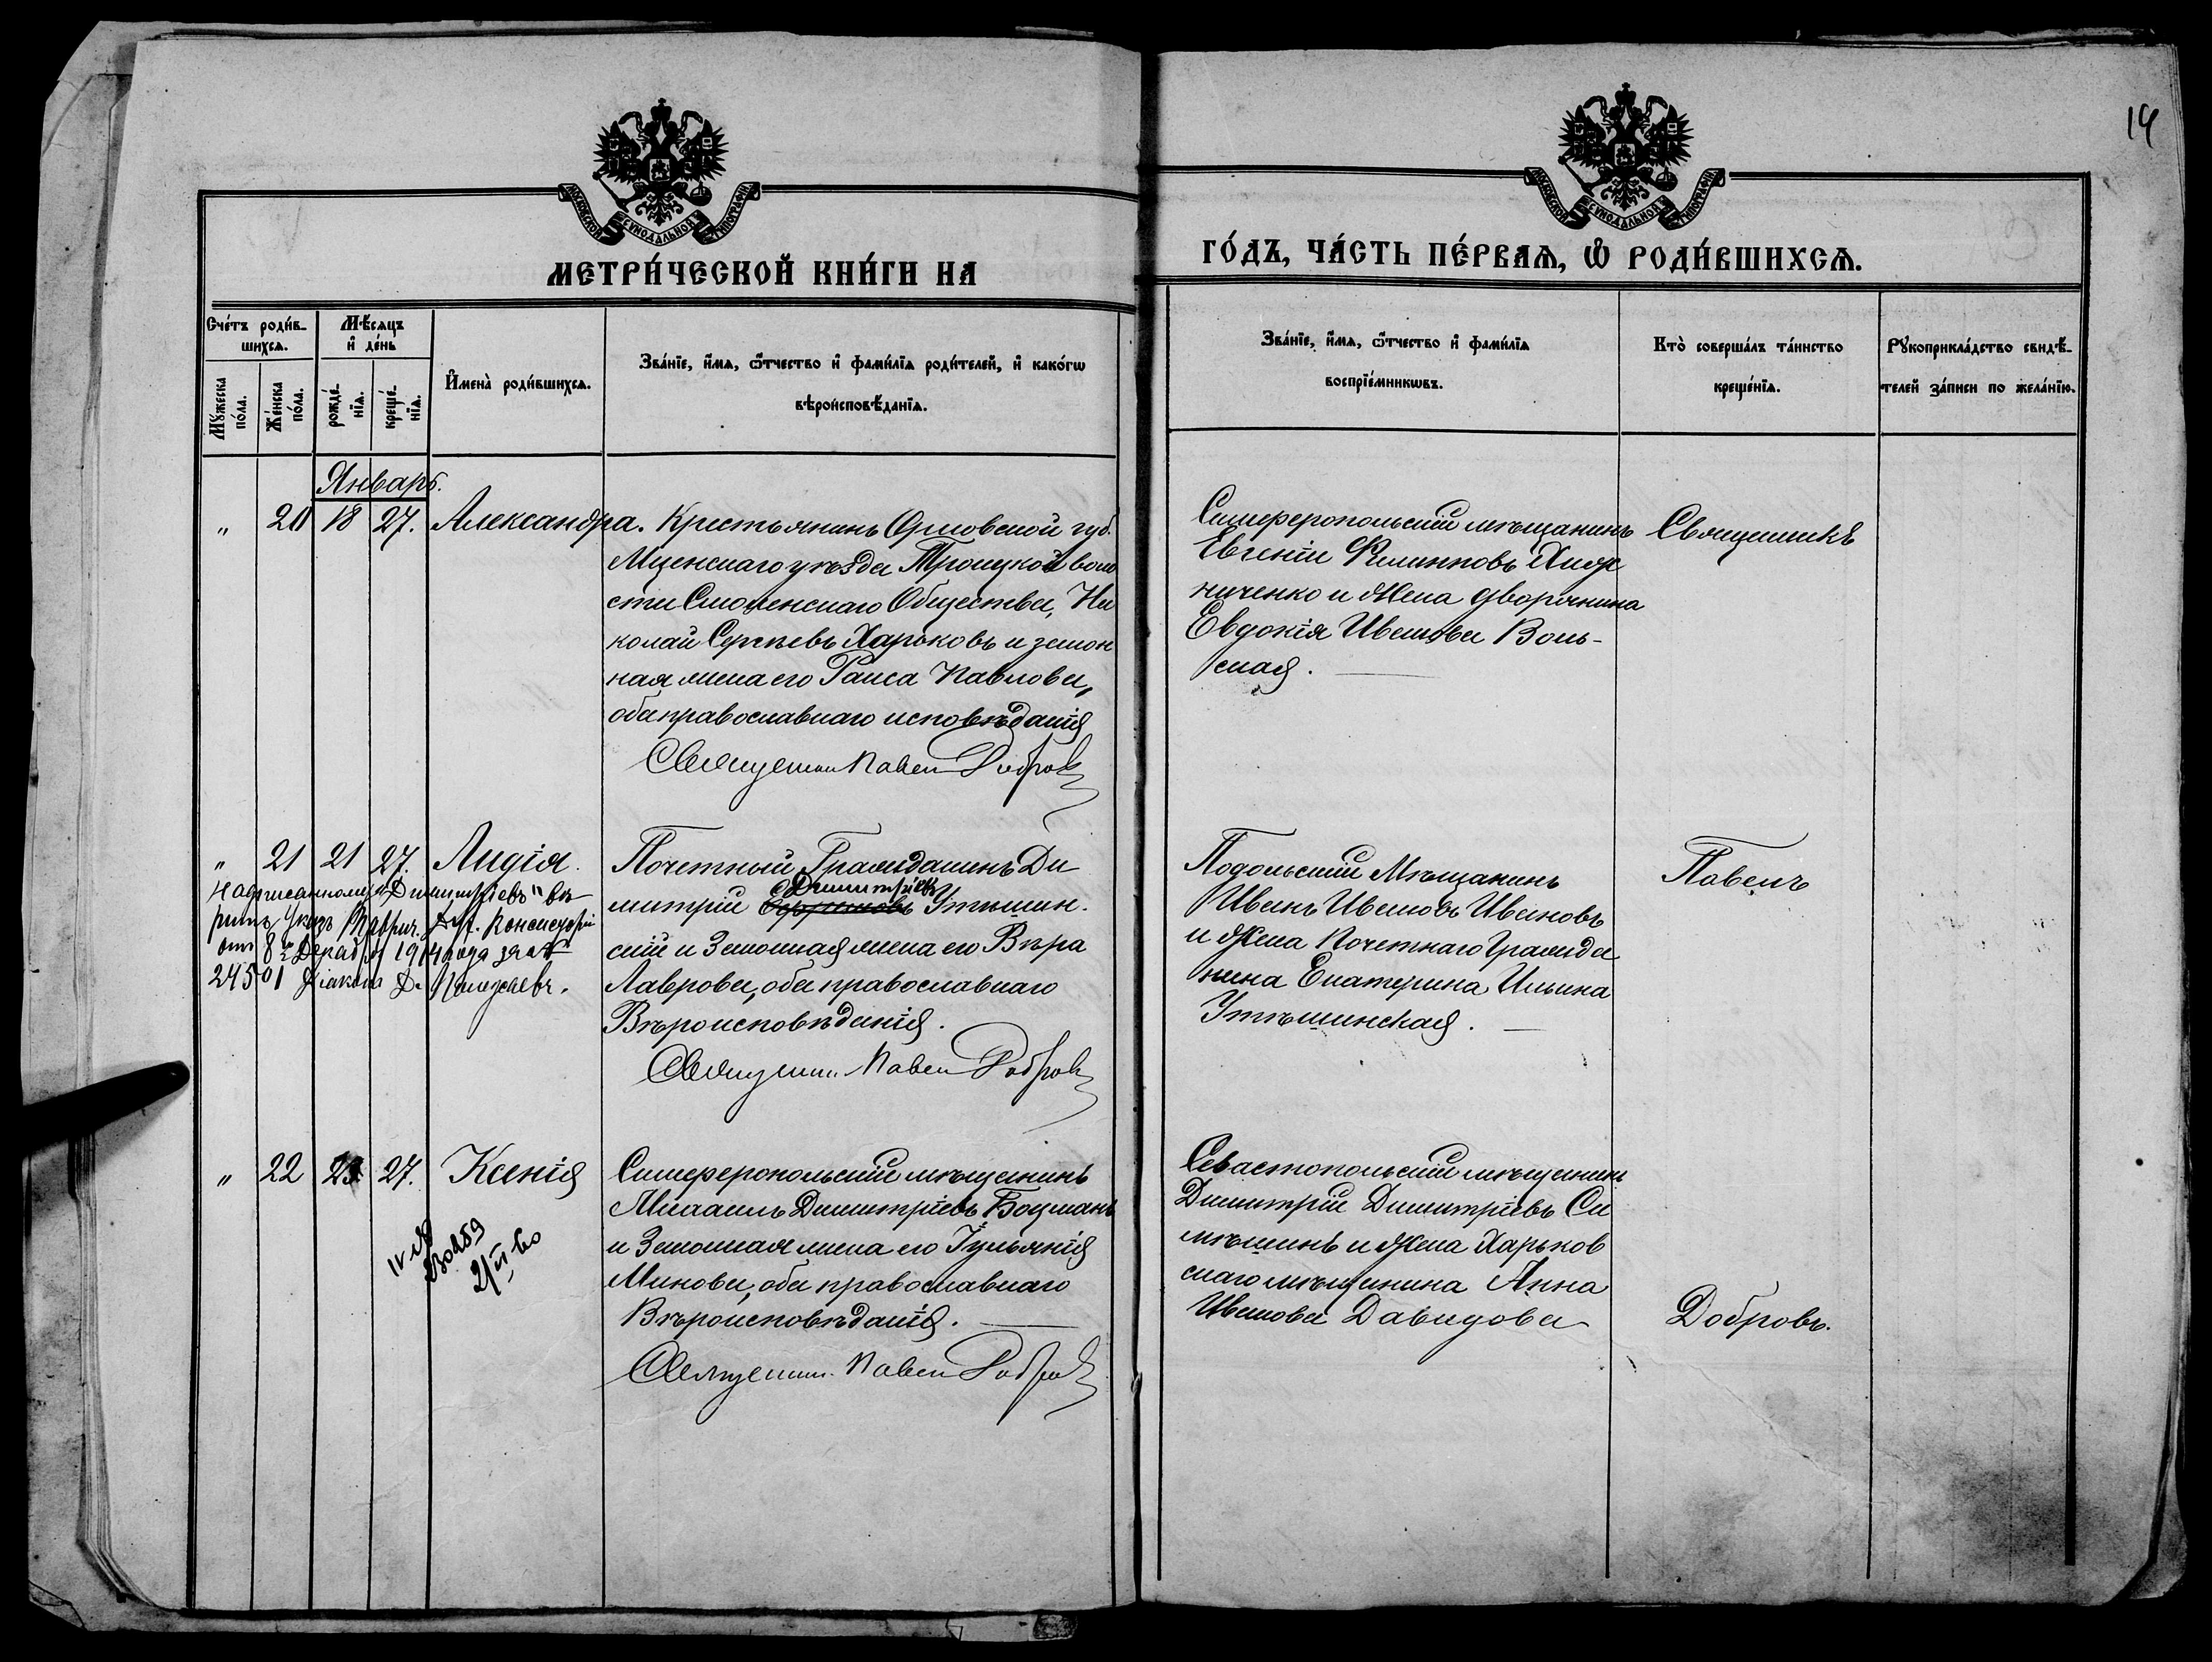 14
МОСКОВСКОЙ СѴНОДАЛЬНОЙ ТИПОГРАФІИ
МОСКОВСКОЙ СѴНОДАЛЬНОЙ ТИПОГРАФІИ
МЕТРИ́ЧЕСКОЙ КНИ́ГИ НА
ГО́ДЪ, ЧА́СТЬ ПЕ́РВАѦ, Ѡ҆ РОДИ́ВШИХСѦ.
Сче́тъ роди́в-
шихсѧ.
Мꙋ́жеска по́ла.
Же́нска по́ла.
Мѣ́сѧцъ
и҆ де́нь
рожде́-нїѧ.
креще́-нїѧ.
И҆мена̀ роди́вшихсѧ.
Зва́нїе, и҆́мѧ, ѻ҆́тчество и҆ фами́лїѧ роди́телей, и҆ како́гѡ
вѣроисповѣ́данїѧ.
Зва́нїе, и҆́мѧ, ѻ҆́тчество и҆ фами́лїѧ
воспрїе́мникѡвъ.
Кто̀ соверша́лъ та́инство
креще́нїѧ.
Рꙋкоприкла́дство свидѣ́-
телей за́писи по жела́нїю.
Январь.
„ 20 18 27. Александра.
Крестьянинъ Орловской губ.
Мценскаго уѣзда Троицкой воло
сти Смоленскаго Общества, Ни
колай Сергѣевъ Харьковъ и закон
ная жена его Раиса Павлова,
оба православнаго исповѣданія
Священник Павел Добров
Симферопольскій мѣщанинъ
Евгеній Филипповъ
ниченко и жена дворянина
Евдокія Иванова Воль-
ская.
Священникъ
„ 21 21 27. Лидія.
Надписанному „Димитріевъ" вѣ
рить Указъ Таврич. Дух. Консисторіи
отъ 8го Декабря 1914 года за №
24501 Діаконъ Д.
Почетный Гражданинъ Ди
Димитріев
митрій Утѣшин.
скій и Законная жена его Вѣра
Лаврова, оба православнаго
Вѣроисповѣданія.
Священник Павел Добров
Подольскій Мѣщанинъ
Иванъ Ивановъ Ивановъ
и Жена Почетнаго Гражда
нина Екатерина Ильина
Утѣшинская.
Павелъ
„ 22 23 27. Ксенія
IV АЯ
230259
2/VI во
Симферопольскій мѣщанинъ
Михаилъ Димитріевъ Боцманъ
и Законная жена его Іуліанія
Минова, оба православнаго
Вѣроисповѣданія.
Священник Павел Добров
Севастопольскій мѣщанинъ
Димитрій Димитріевъ Си
мѣшинъ и Жена Харьков
скаго мѣщанина Анна
Иванова Давидова
Добровъ.